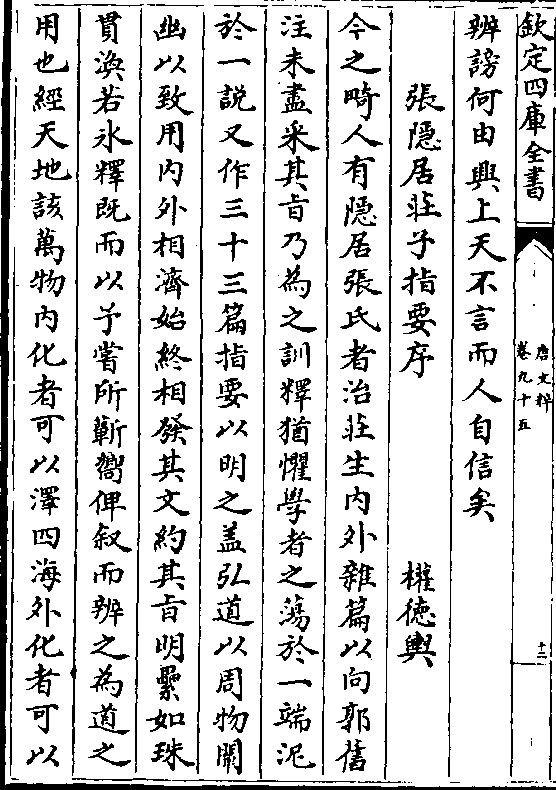 欽定四庫全書
唐文粹
卷九十五
十二
辨謗何由興上天不言而人自信矣
張隱居莊子指要序 權德輿
今之畸人有隱居張氏者治莊生内外雜篇以向郭舊
注未盡采其旨乃為之訓釋猶懼學者之蕩於一端泥
於一説又作三十三篇指要以明之盖弘道以周物闡
幽以致用内外相濟始終相發其文約其旨明纍如珠
貫渙若氷釋既而以予嘗所蘄嚮俾叙而辨之為道之
用也經天地該萬物内化者可以澤四海外化者可以